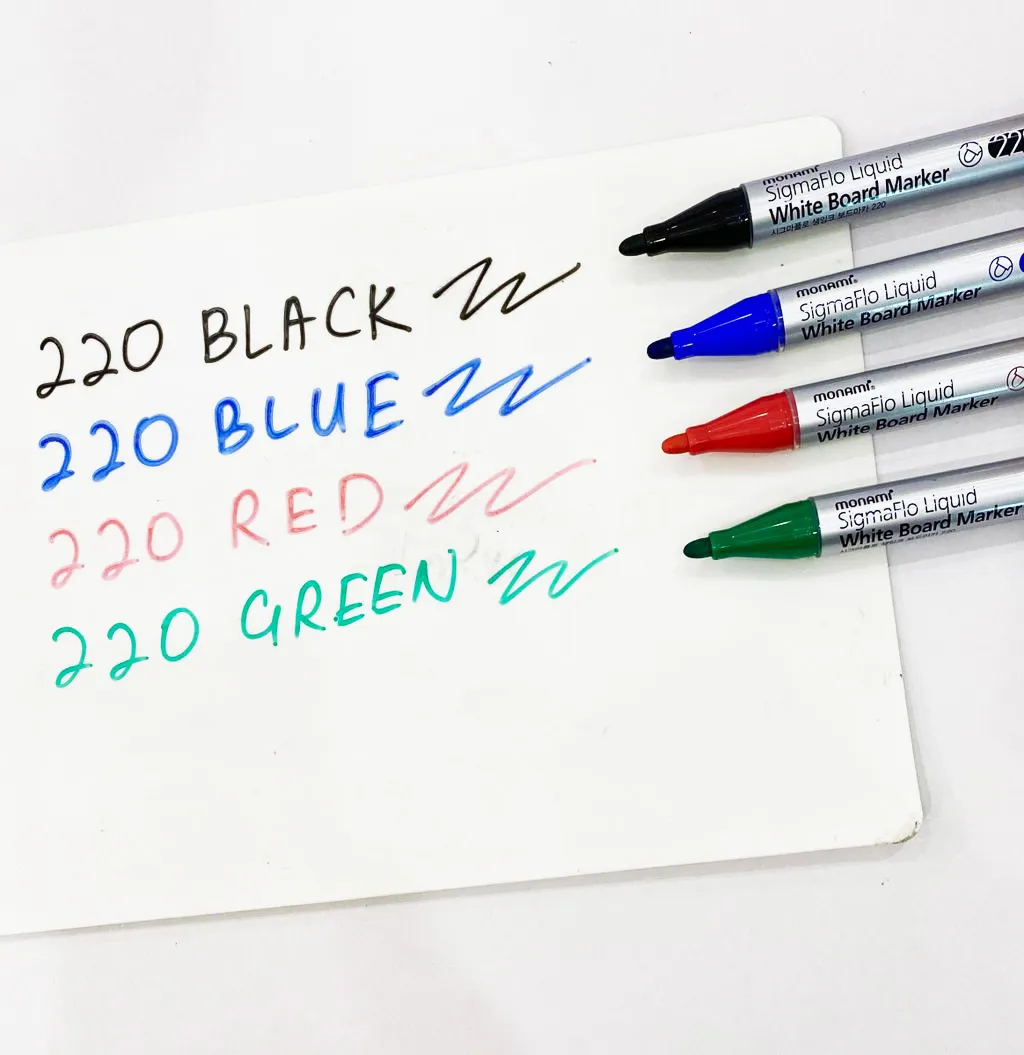 220 BLACK
220 BLUE
220 RED
220 GREEN
monami
SigmaFlo Liquid
White Board Marker
시그마플로 생잉크 보드마카 220
220
monami
SigmaFlo Liquid
White Board Marker
monami
SigmaFlo Liquid
White Board Marker
monami
SigmaFlo Liquid
White Board Marker
시그마플로 생잉크 보드마카 220